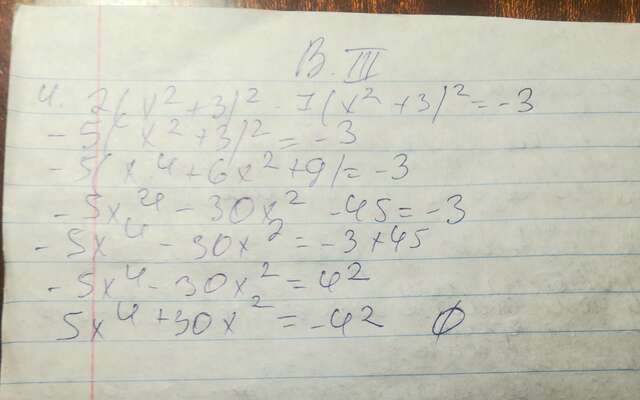 В. III
4. 2(x² + 3)² - 7(x² + 3)² = -3
- 5(x² + 3)² = -3
- 5(x⁴ + 6x² + 9) = -3
- 5x⁴ - 30x² - 45 = -3
- 5x⁴ - 30x² = -3 + 45
- 5x⁴ - 30x² = 42
5x⁴ + 30x² = -42 ∅